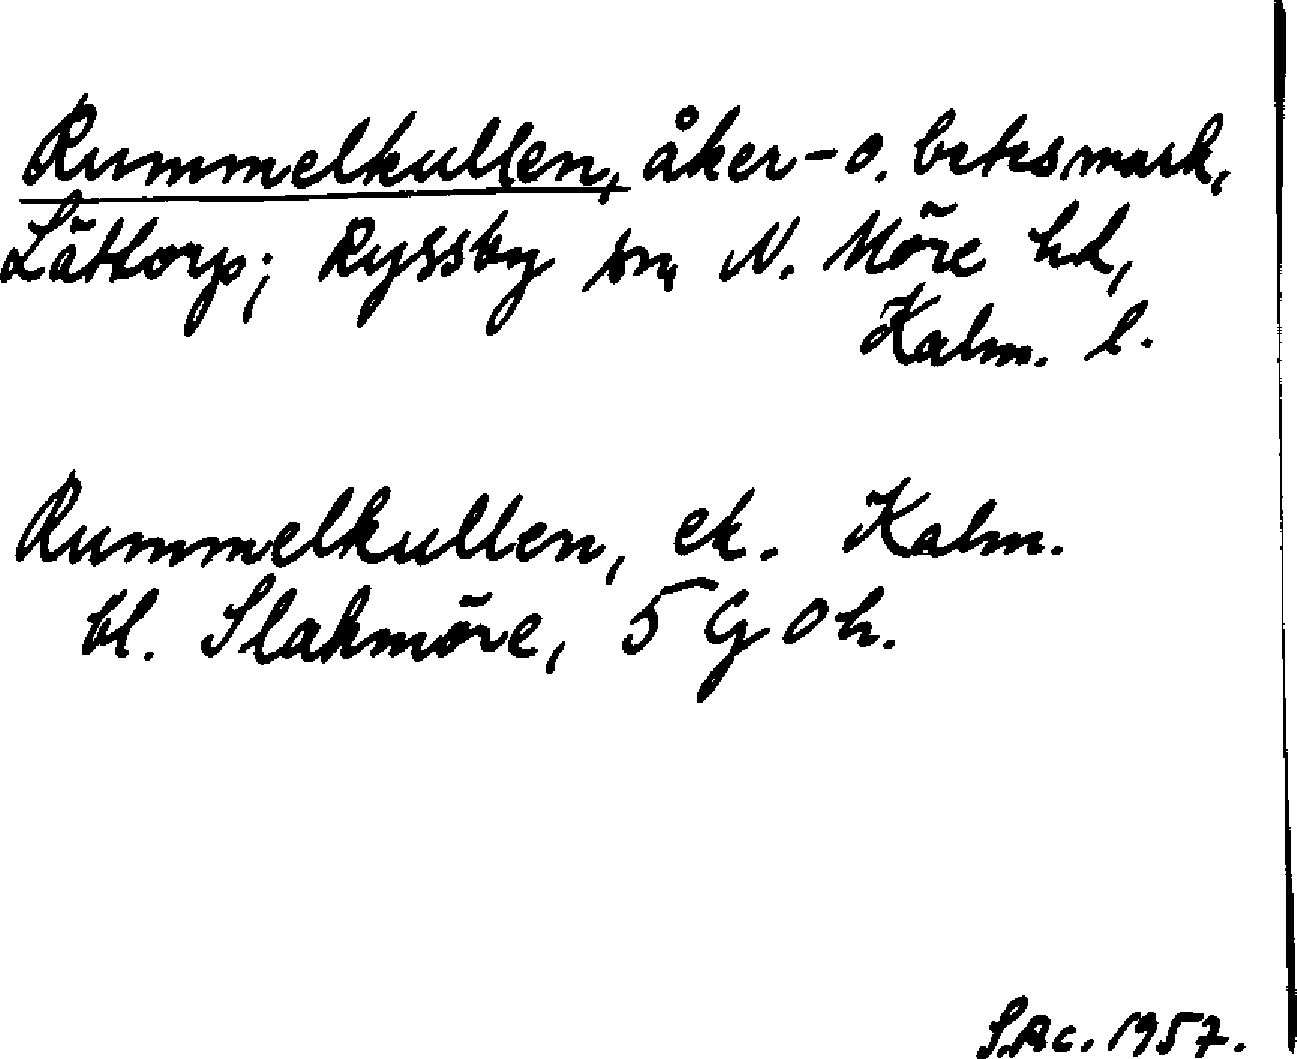 Rummelkullen, åker- o. betesmark,
Lättorp; Ryssby sn, N. Möre hd,
Kalm. l.
Rummelkullen, ek. Kalm.
bl. Slakmöre, 5 G Oh.
1957.